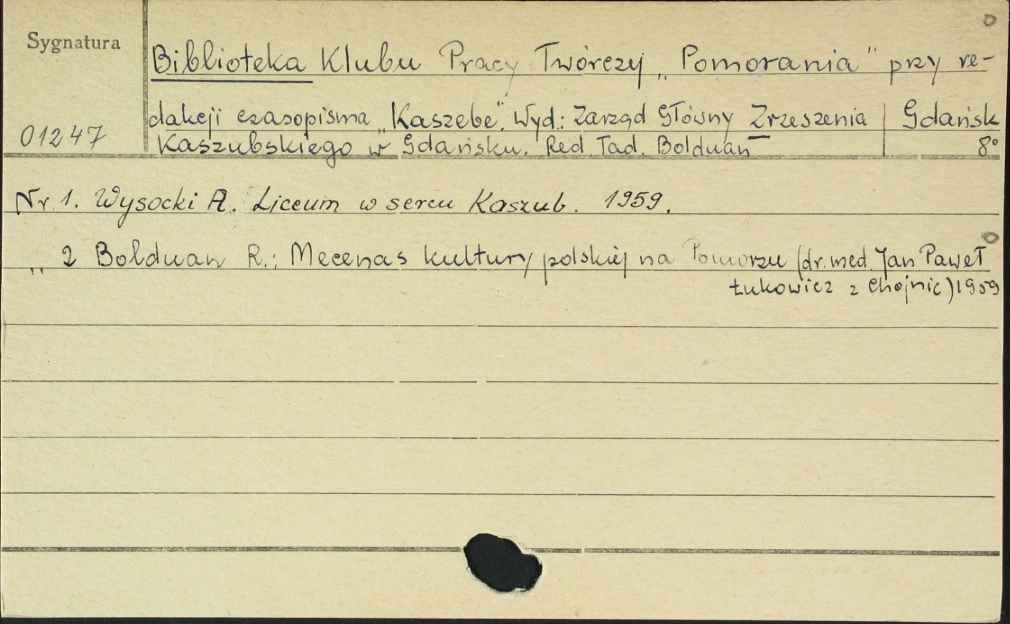 Sygnatura
Biblioteka Klubu Pracy Twórczej „Pomorania" przy re-
dakcji czasopisma „Kaszebe". Wyd.: Zarząd Główny Zrzeszenia Gdańsk
01247 Kaszubskiego w Gdańsku. Red. Tad. Bolduan 8°
Nr 1. Wysocki A. Liceum w sercu Kaszub. 1959.
„ 2 Bolduan R.: Mecenas kultury polskiej na Pomorzu (dr. med. Jan Paweł
Łukowicz z Chojnic) 1959